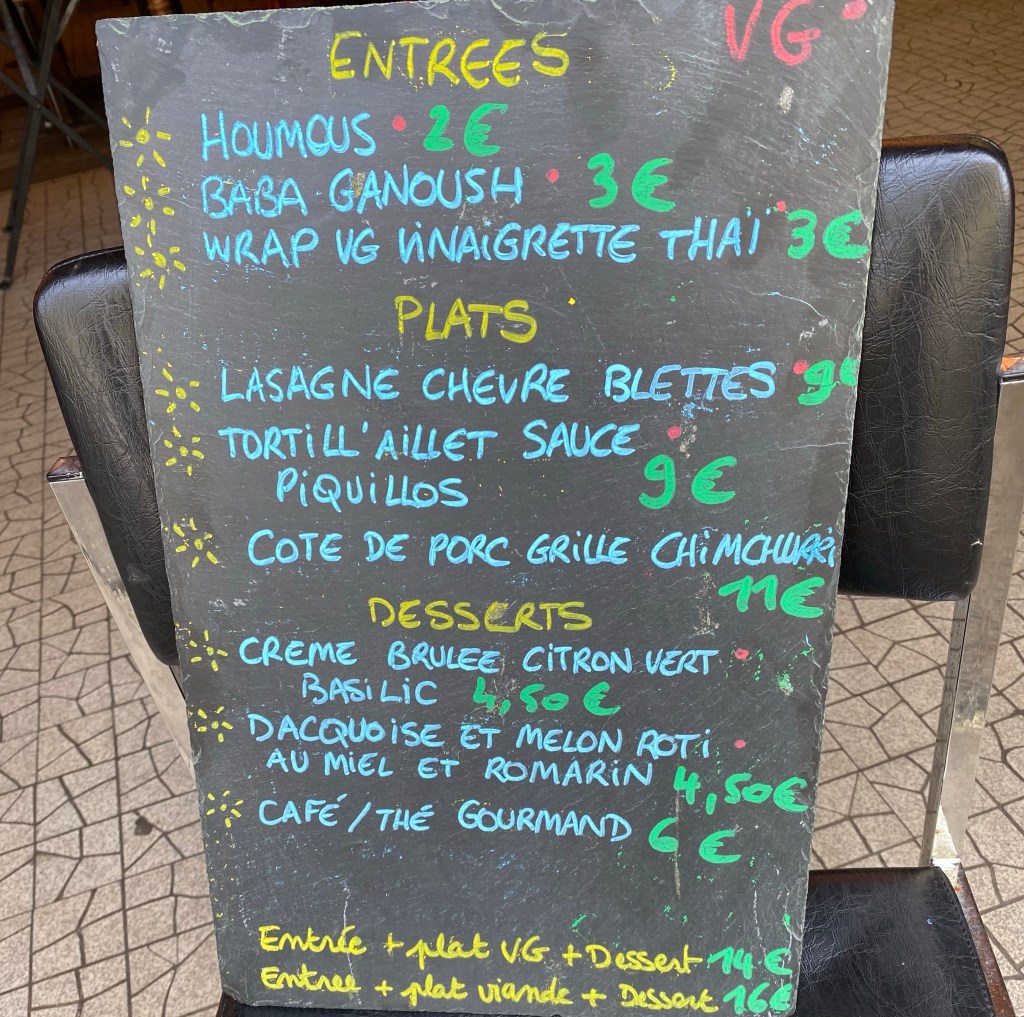 VG
ENTREES
HOUMOUS 2€
BABA GANOUSH 3€
WRAP VG VINAIGRETTE THAÏ 3€
PLATS
LASAGNE CHEVRE BLETTES 9€
TORTILL'AILLET SAUCE
PIQUILLOS 9€
COTE DE PORC GRILLE CHIMCHURRI
11€
DESSERTS
CREME BRULEE CITRON VERT
BASILIC 4,50€
DACQUOISE ET MELON ROTI
AU MIEL ET ROMARIN 4,50€
CAFÉ/THÉ GOURMAND 6€
Entrée + plat VG + Dessert 14€
Entree + plat viande + Dessert 16€